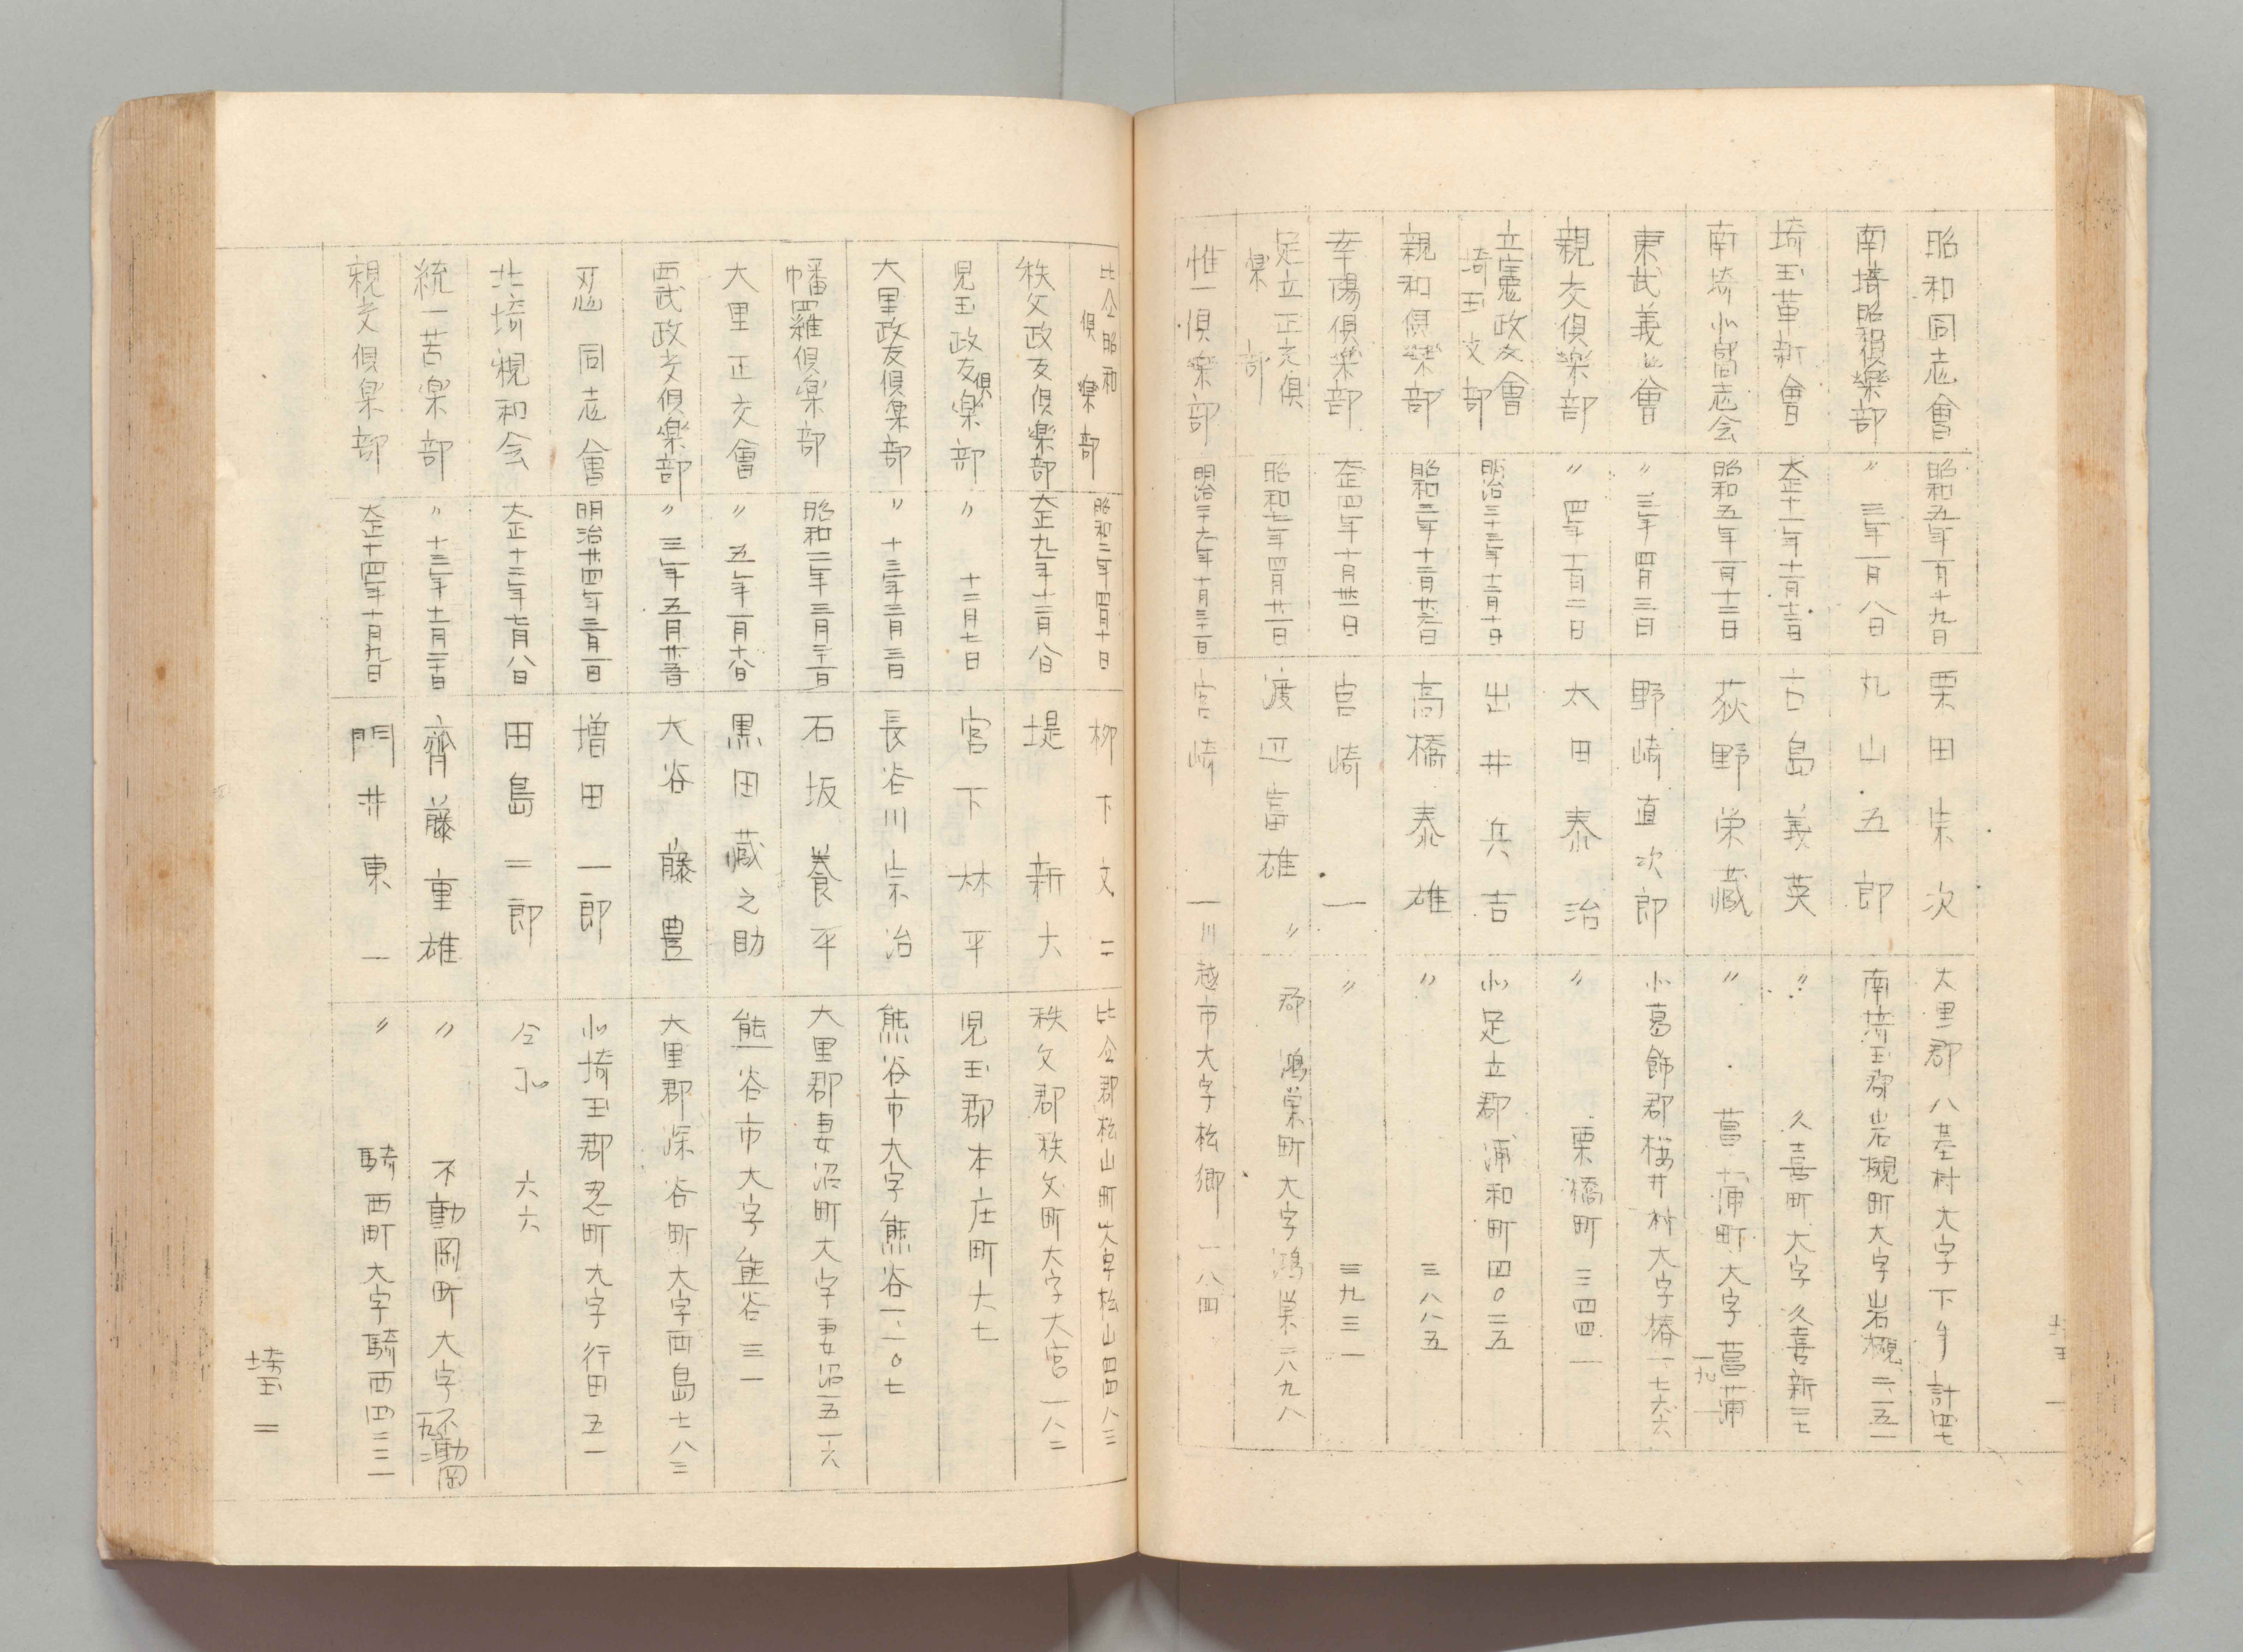 昭和同志會 昭和五年一月十九日 栗田宗次 大里郡八基村大字下手計四七
南埼昭和俱楽部 〃三年一月八日 丸山五郎 南埼玉郡岩槻町大字岩槻二、一五一
埼玉革新會 大正十一年十一月十一日 古島義英 〃 久喜町大字久喜新三七
南埼北同志会 昭和五年一月十二日 荻野栄蔵 〃 菖蒲町大字菖蒲
東武義公會 〃三年四月三日 野崎直次郎 北葛飾郡桜井村大字椿一七六六
親交俱楽部 〃四年十一月二日 太田泰治 〃 栗橋町三四四一
立憲政友會埼玉支部 明治三十三年十二月十日 出井兵吉 北足立郡浦和町四〇二五
親和俱楽部 昭和二年十二月廿六日 高橋泰雄 〃 三八八五
幸陽俱楽部 大正四年十月廿一日 宮崎一 〃 三九三一
足立正交俱楽部 昭和七年四月廿一日 渡辺富雄 〃郡鴻巣町大字鴻巣二八九八
惟一俱楽部 明治三十六年十月三十一日 宮崎一 川越市大字松郷一一八四
比企昭和俱楽部 昭和二年四月十日 柳下文二 比企郡松山町大字松山四四八三
秩父政友俱楽部 大正九年十二月八日 堤新六 秩父郡秩父町大字大宮一八二
児玉政友俱楽部 〃 十二月七日 宮下林平 児玉郡本庄町六七
大里政友俱楽部 〃十三年三月三日 長谷川宗治 熊谷市大字熊谷一、一〇七
幡羅俱楽部 昭和二年三月三十一日 石坂養平 大里郡妻沼町大字妻沼一五一六
大里正交會 〃五年一月十八日 黒田蔵之助 熊谷市大字熊谷三一
西武政友俱楽部 〃三年五月廿五日 大谷藤豊 大里郡深谷町大字西島七八三
忍同志會 明治廿四年三月一日 増田一郎 北埼玉郡忍町大字行田五一
北埼親和会 大正十二年七月八日 田島二郎 仝 六六
統一苦楽部 〃十三年十一月二十日 齊藤重雄 〃 不動岡町大字不動岡
親交俱楽部 大正十四年十月九日 門井東一 〃 騎西町大字騎西四三三一
埼玉 二